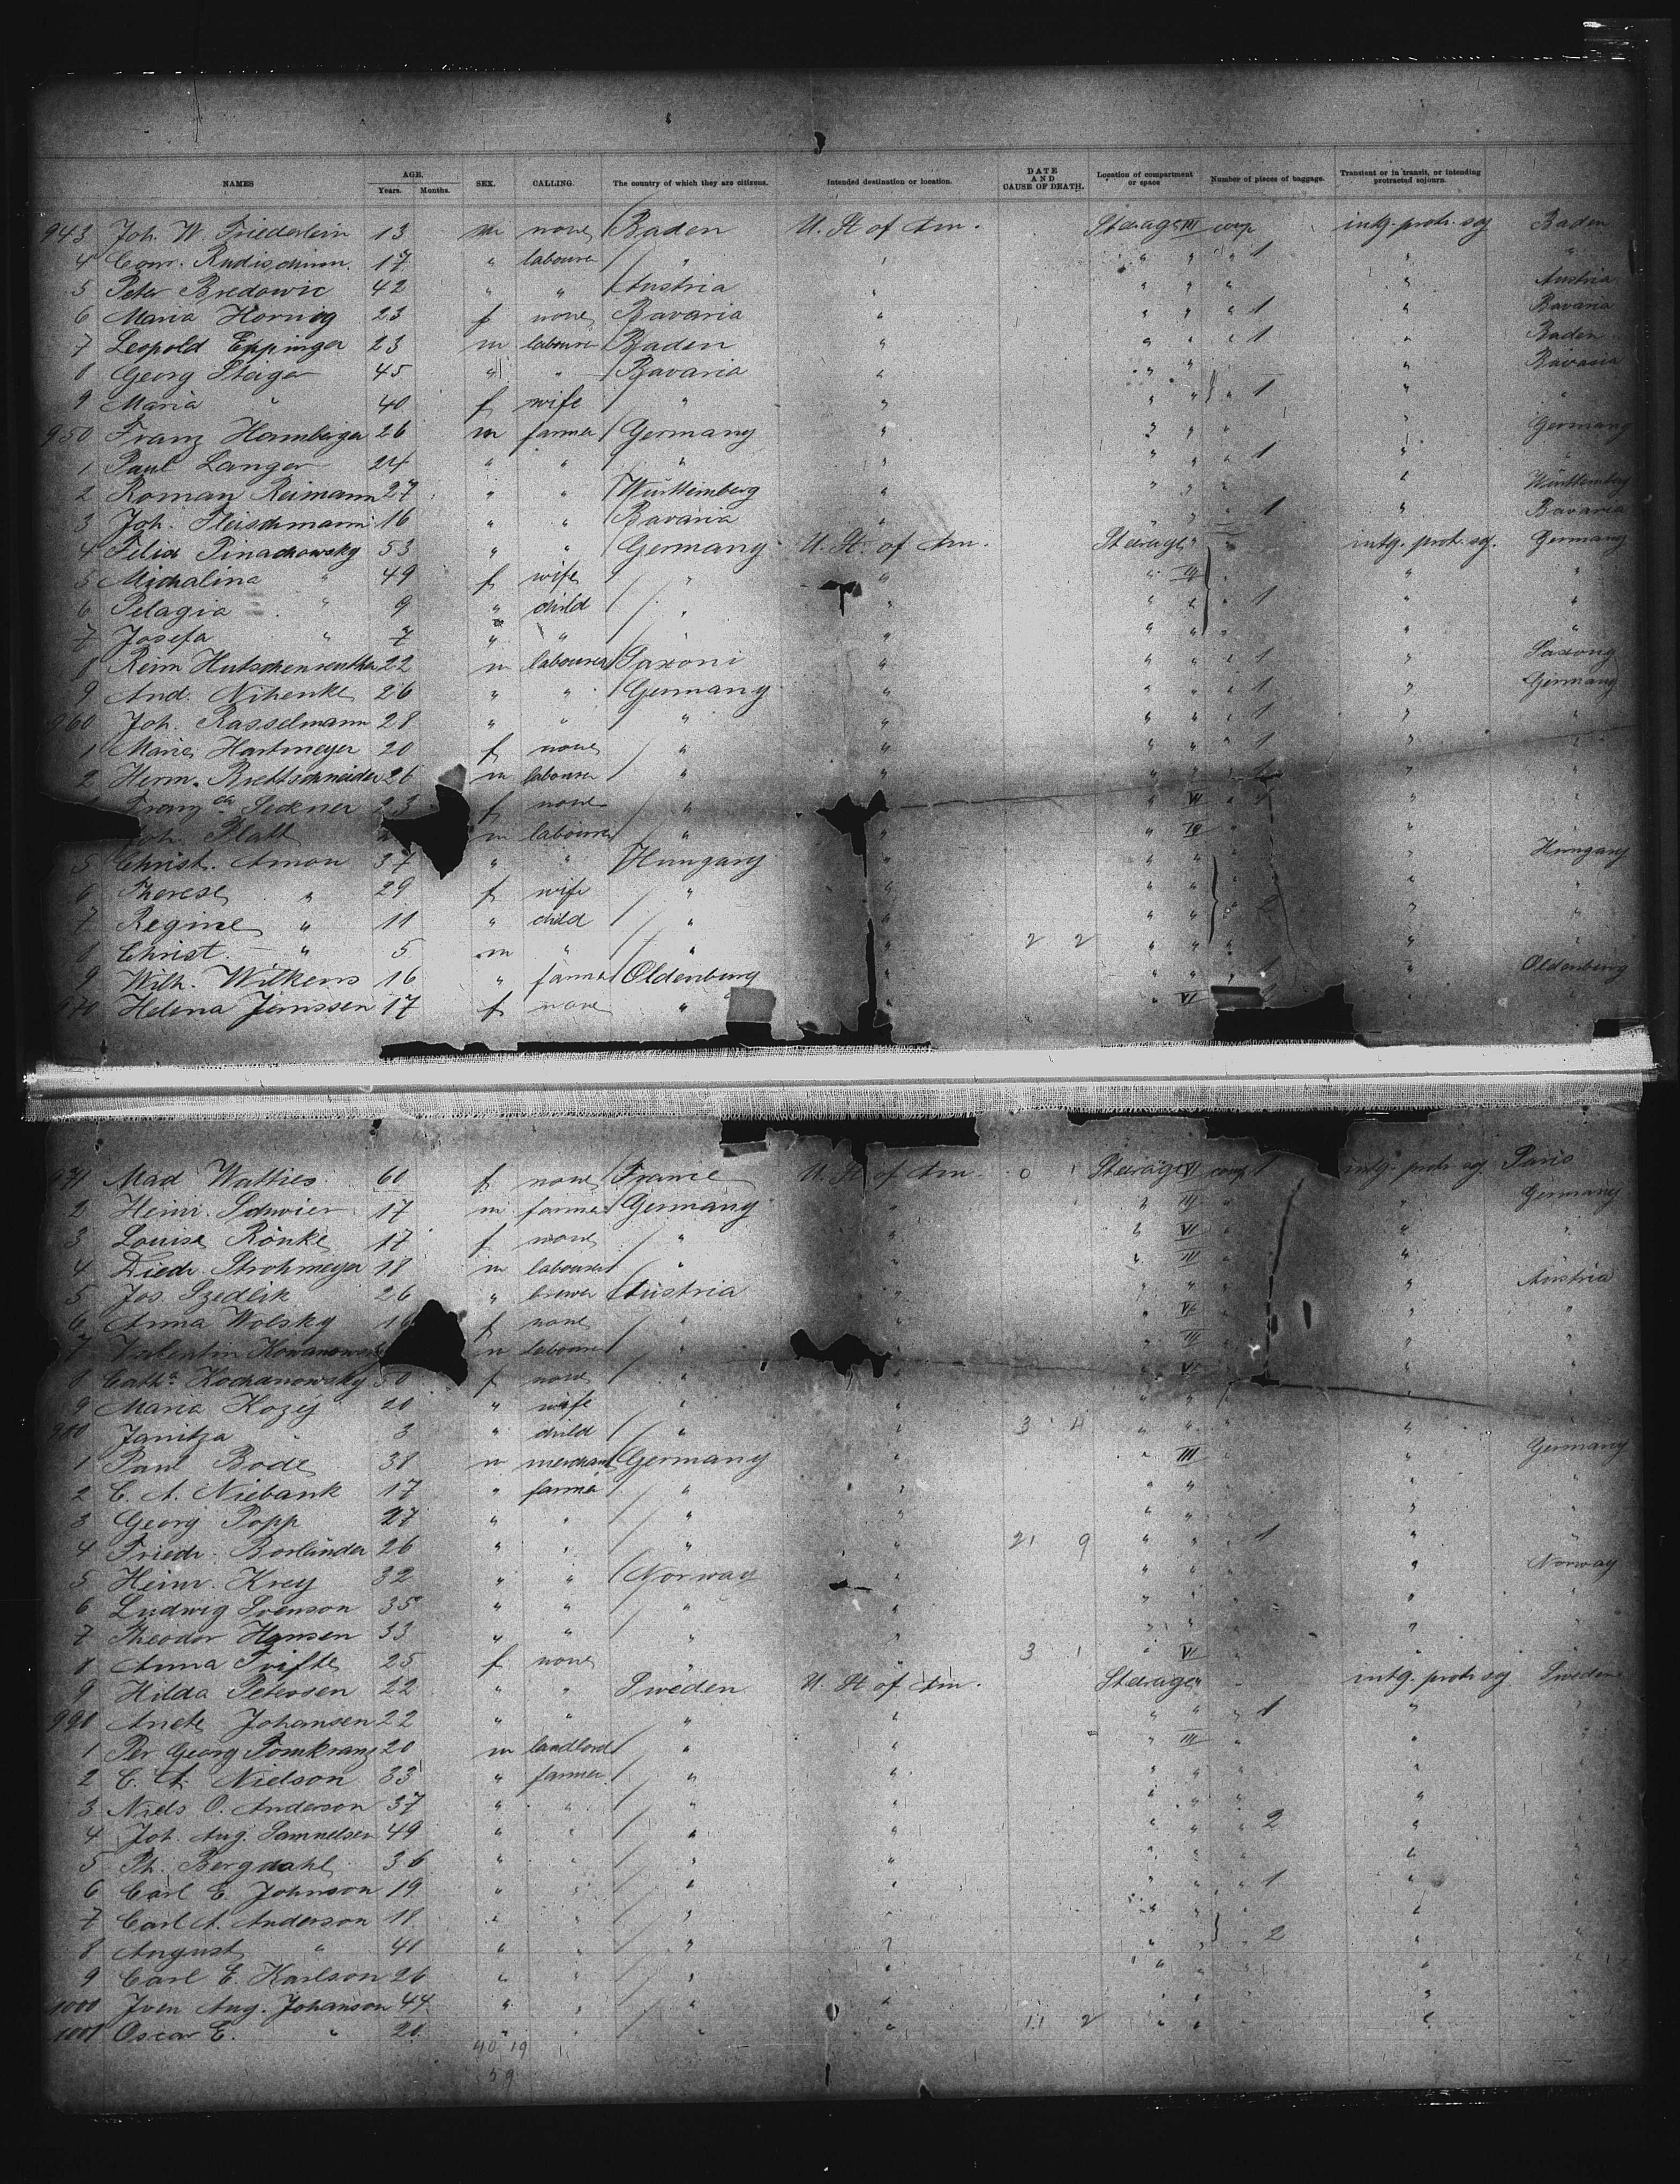 NAMES AGE. Years. Months. SEX. CALLING. The country of which they are citizens. Intended destination or location. DATE AND CAUSE OF DEATH. Location of compartment or space Number of pieces of baggage. Transient or in transit, or intending protracted sojourn.
943 Joh. W. Friederlein 13 m none Baden U. St of Am. Steerage III comp intg. protr. soj Baden
4 Conr. 17 " labourer " " " " " 1 " "
5 Peter Bredowic 42 " " Austria " " " " " Austria
6 Maria Hornig 23 f none Bavaria " " " " 1 " Bavaria
7 Leopold Eppinger 23 m labourer Baden " " " " 1 " Baden
8 Georg Steiger 45 " " Bavaria " " " " Bavaria
9 Maria " 40 f wife " " " " " 1 " "
950 Franz Hamberger 26 m farmer Germany " " " " " Germany
1 Paul Langer 24 " " " " " " " 1 " "
2 Roman Reimann 27 " " Württemberg " " " " " Württemberg
3 Joh. Fleischmann 16 " " Bavaria " " " 1 " Bavaria
4 Felix Pinachowsky 53 " " Germany U. St. of Am. Steerage " intg. protr. soj. Germany
5 Michalina " 49 f wife " " " III " " "
6 Pelagia " 9 " child " " " " 1 " "
7 Josefa " 7 " " " " " " " " "
8 Reim Hutschenreuther 22 m labourer Saxoni " " " " 1 " Saxony
9 And. Nihenke 26 " " Germany " " " " 1 " Germany
960 Joh. Rasselmann 28 " " " " " " " 1 " "
1 Marie Hartmeyer 20 f none " " " " " 1 " "
2 Herm. Brettschneider 26 m labourer " " " " " "
23 f none " " " VI " " "
Joh. Platt m labourer " " " III " "
5 Christ. Amon 37 " " Hungary " " " " Hungary
6 Therese " 29 f wife " " " " " "
7 Regine " 11 " child " " " " 2 " "
8 Christ. " 5 m " " " 2 2 " " " " "
9 Wilh. Wilkens 16 " farmer Oldenburg " " " " 1 " Oldenburg
970 Helena Janssen 17 f none " " " VI
971 Mad Watties 60 f none France U. St of Am. 0 1 Steerage VI comp 1 intg. protr. soj Paris
2 Heinr. Schwier 17 m farmer Germany " " III " " Germany
3 Louise Rönke 17 f none " " " VI " " "
4 Diedr. Strohmeyer 18 m labourer " " " III " "
5 Jos. Szedlik 26 " brewer Austria " " " " Austria
6 Anna Wolsky f none " " " VI " "
7 Valentin m labourer " " III " "
8 Catha Kochanowsky 50 f none " " " VI " "
9 Maria Kozij 20 " wife " " " " " "
980 Janitza " 3 " child " " 3 4 " " " "
1 Paul Bode 38 m merchant Germany " " III " Germany
2 C. A. Niebank 17 " farmer " " " " " "
3 Georg Popp 27 " " " " " " " "
4 Friedr. Borländer 26 " " " " 21 9 " " 1 " "
5 Heinr. Krey 32 " " Norway " " " " Norway
6 Ludwig Svenson 35 " " " " " " " "
7 Theodor Hansen 33 " " " " " " "
8 Anna 25 f none " " 3 1 " VI " "
9 Hilda Petersen 22 " " Sweden U. St of Am. Steerage " intg. protr soj Sweden
990 Anete Johansen 22 " " " " " " " 1 " "
1 Per Georg Tornkranz 20 m landlord " " " III " " "
2 C. A. Nielson 33 " farmer " " " " " "
3 Niels O. Anderson 37 " " " " " " " " "
4 Joh. Aug. Samuelsen 49 " " " " " " " 2 " "
5 Ph. Bergdahl 36 " " " " " " " "
6 Carl E. Johnson 19 " " " " " " " 1 " "
7 Carl A. Anderson 18 " " " " " " " "
8 August " 41 " " " " " " 2 " "
9 Carl E. Karlson 26 " " " " " " " "
1000 Sven Aug. Johanson 44 " " " " " " " "
1001 Oscar E. " 20 " " " " 11 2 " " " "
40 19
59